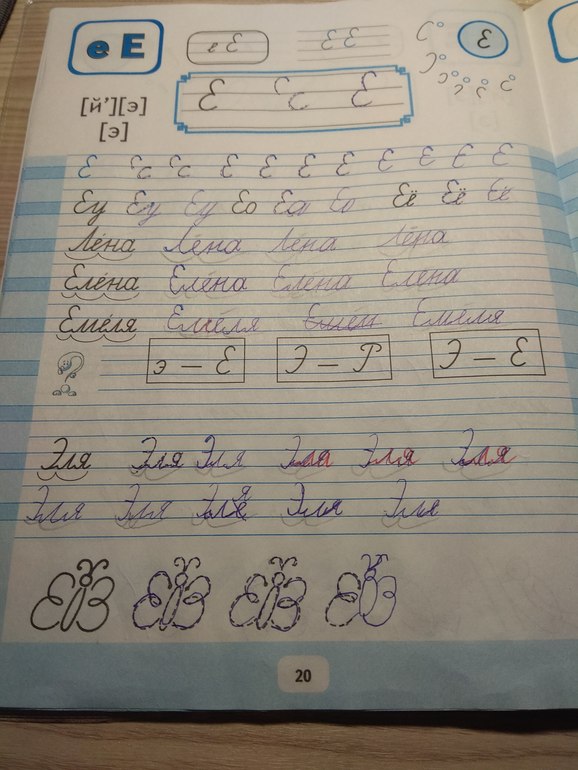 е Е е Е Е Е Е
[й'][э] Е Е
[э]
Е Е Е Е Е Е Е Е Е
Еу Еу Еу Ео Еа Ео Её Её Её
Ле́на Лена Лена Лена
Еле́на Елена Елена Елена
Еме́ля Емеля Емеля
э – Е Э – Р Э – Е
Эля Эля Эля Эла Эля Эля
Эля Эля Эля я Эля Эля
20